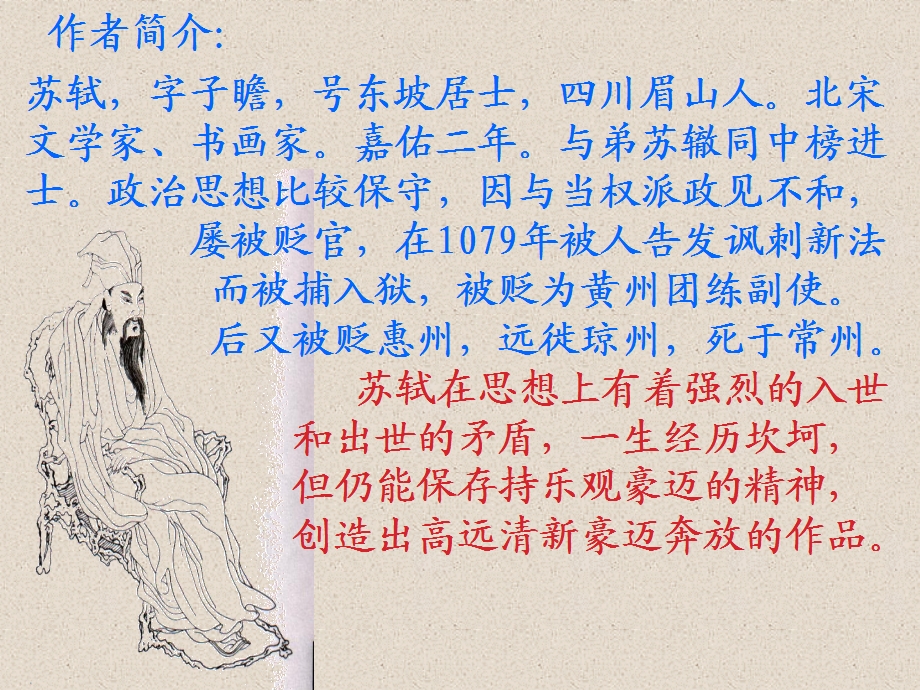 作者简介:
苏轼，字子瞻，号东坡居士，四川眉山人。北宋
文学家、书画家。嘉佑二年。与弟苏辙同中榜进
士。政治思想比较保守，因与当权派政见不和，
屡被贬官，在1079年被人告发讽刺新法
而被捕入狱，被贬为黄州团练副使。
后又被贬惠州，远徙琼州，死于常州。
苏轼在思想上有着强烈的入世
和出世的矛盾，一生经历坎坷，
但仍能保存持乐观豪迈的精神，
创造出高远清新豪迈奔放的作品。